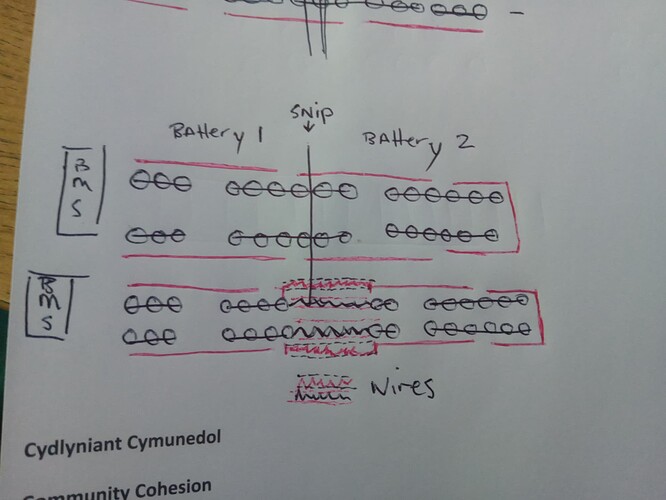 SNiP
BAttery 1
BAttery 2
B
M
S
B
M
S
Wires
Cydlyniant Cymunedol
Community Cohesion